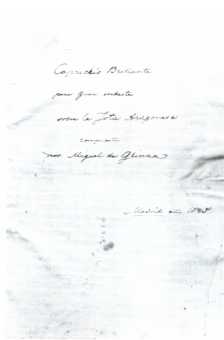 Capricho Brillante
para gran orchesta
sobre la Jota Aragonesa
por Miguel de Glinka
Madrid año